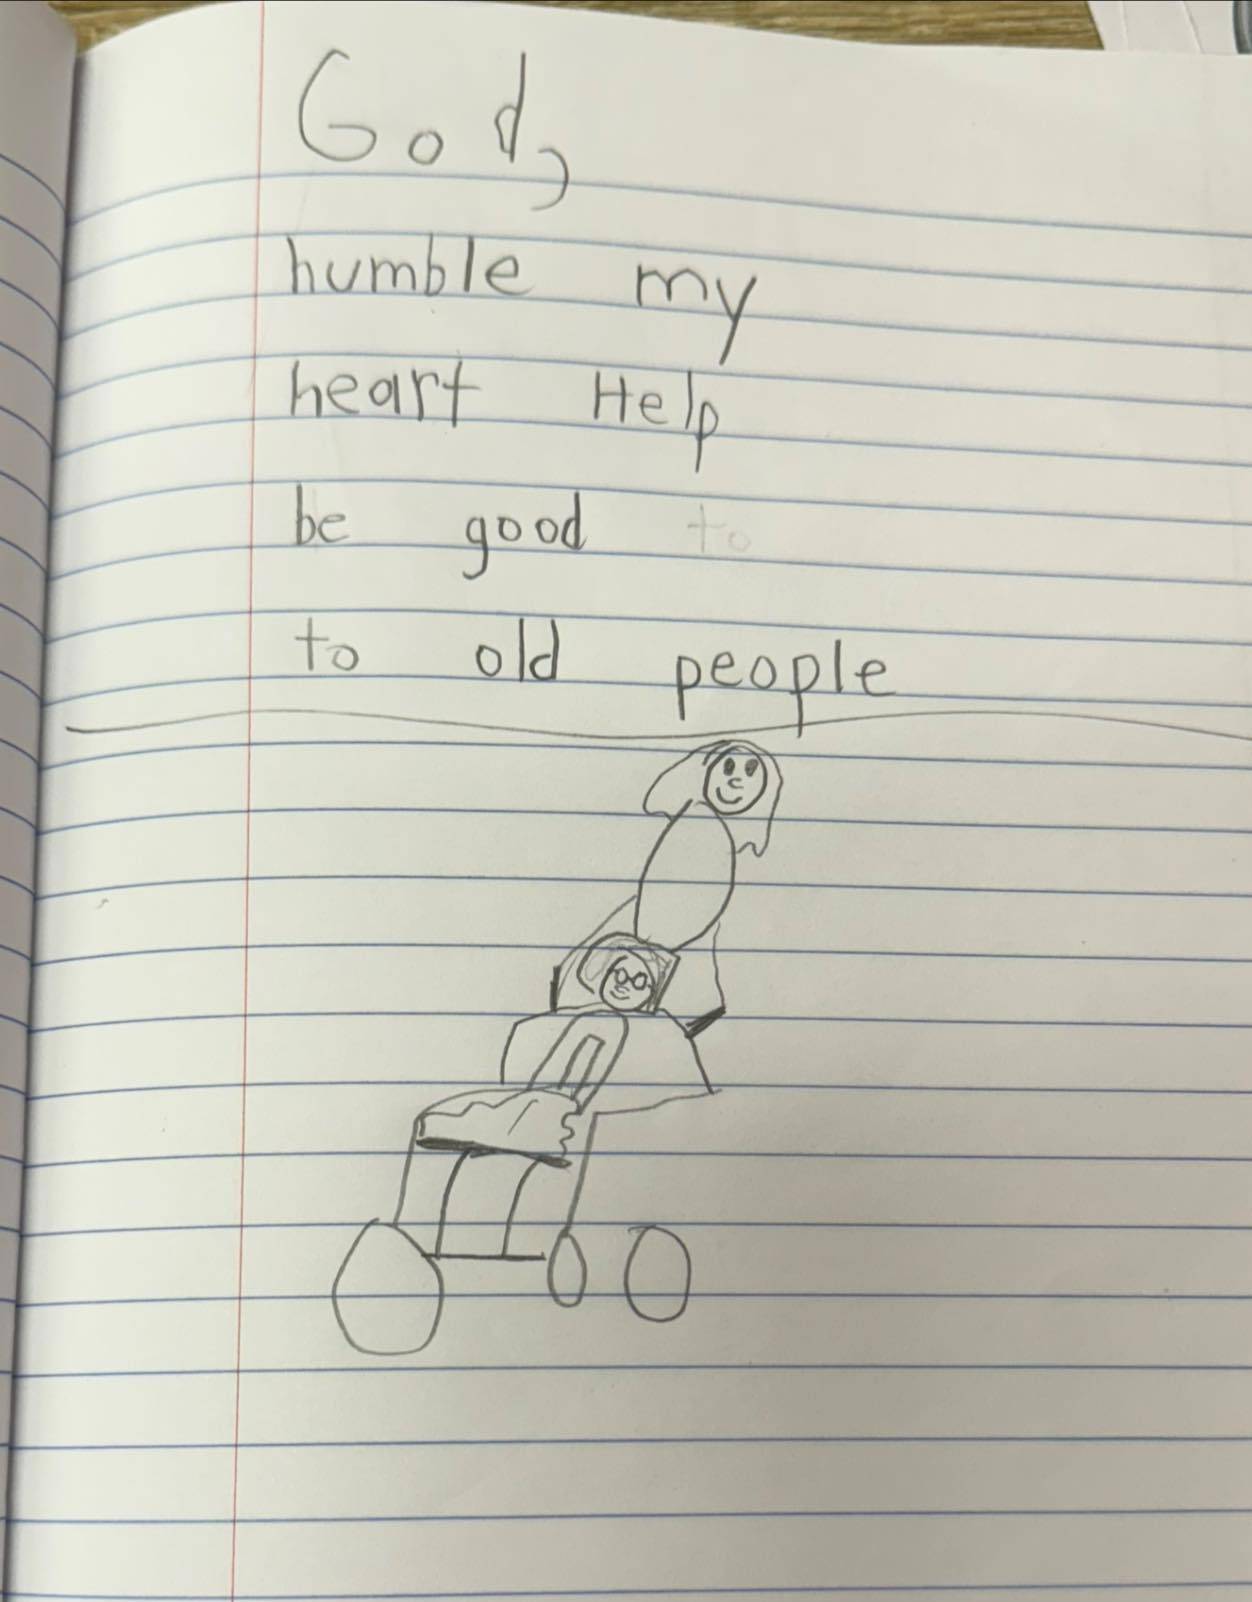 God,
humble my
heart Help
be good to
to old people